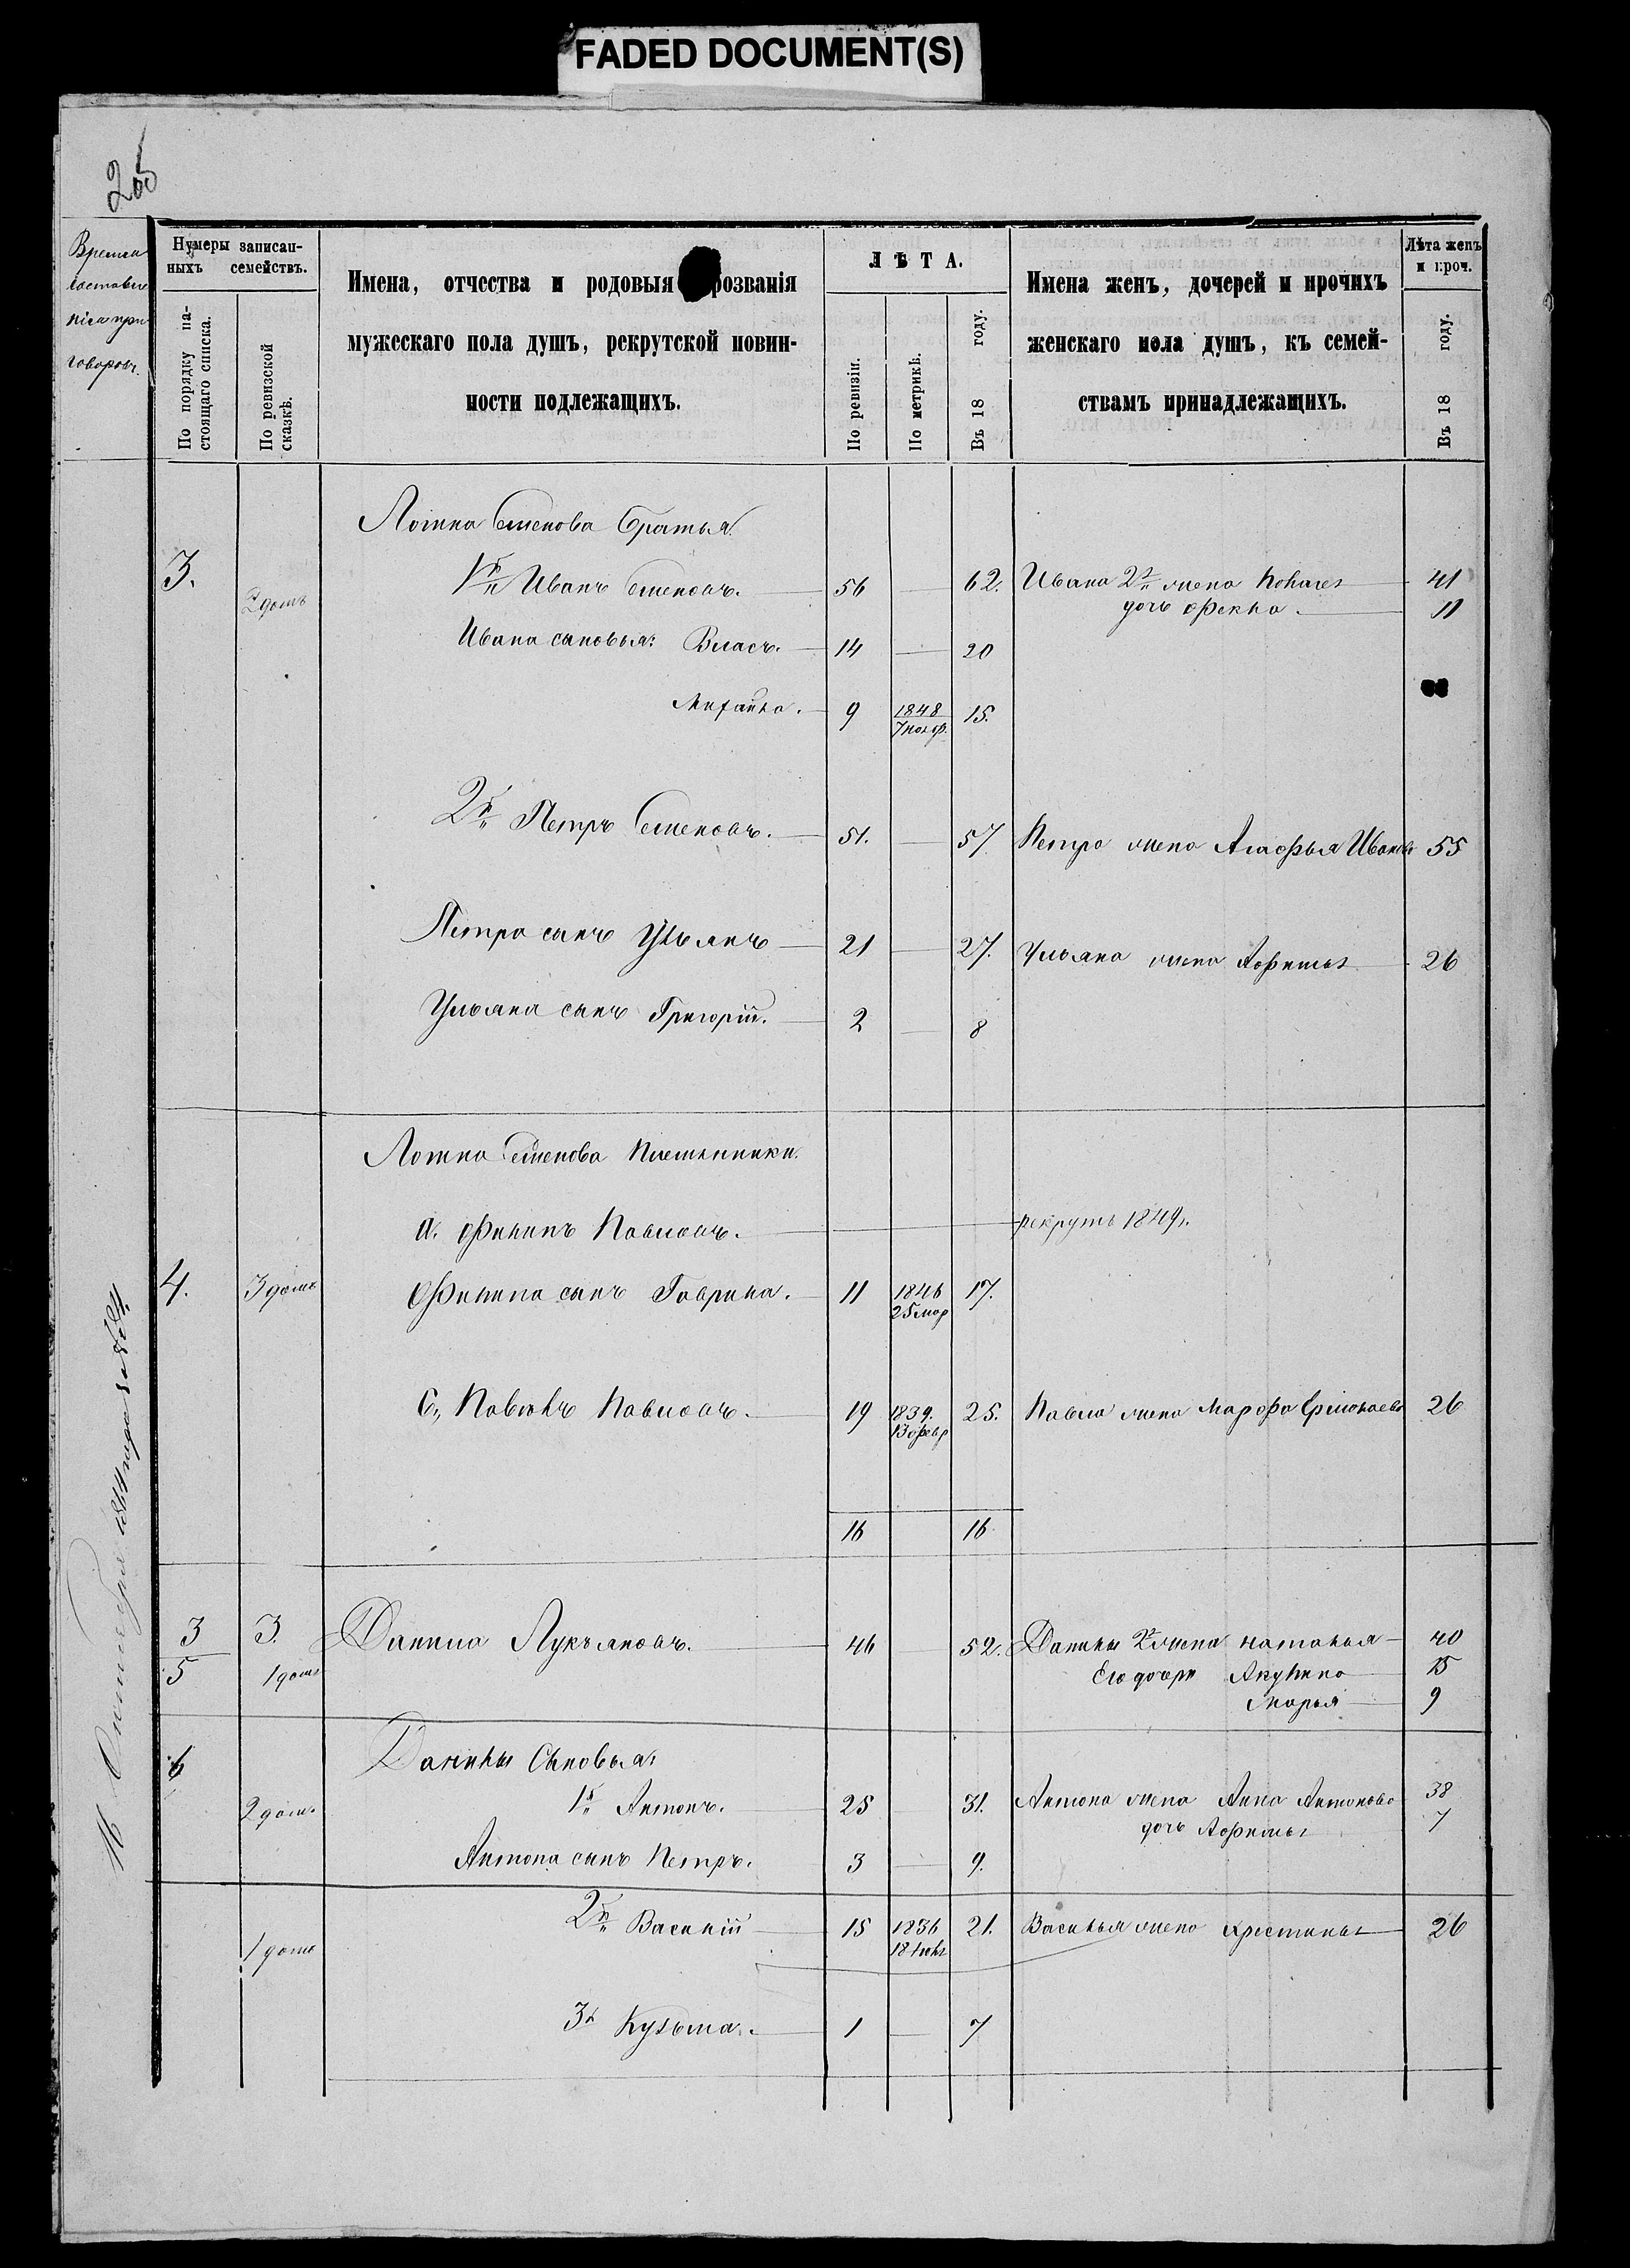 FADED DOCUMENT(S)
205
Время
составле
нія при
говоровъ.
Нумеры записан-
ныхъ семействъ.
По порядку на-
стоящаго списка.
По ревизской
сказкѣ.
Имена, отчества и родовыя прозванія
мужескаго пола душъ, рекрутской повин-
ности подлежащихъ.
ЛѢТА.
По ревизіи.
По метрикѣ.
Въ 18 году.
Имена женъ, дочерей и прочихъ
женскаго пола душъ, къ семей-
ствамъ принадлежащихъ.
Лѣта женъ
и проч.
Въ 18 году.
Семенова Братья.
3. 2 домъ 1й Иванъ Семеновъ. 56 62. Ивана 2я жена 41
дочь Фекла. 11
Ивана сыновья: Власъ. 14 20
Михайла. 9 1848 7 нояб. 15.
2й Петръ Семеновъ. 51. 57 Петра жена Агафья Иванова 55
Петра сынъ Ульянъ 21 27. Ульяна жена Афимья 26
Ульяна сынъ Григорій. 2 8
Семенова Племянники.
а. Филипъ Павловъ. рекрутъ 1849г.
4. 3 домъ Филипа сынъ Гаврила. 11 1846 25 мар 17.
Павелъ Павловъ. 19 1839. 13 февр 25. Павла жена Марфа 26
16 16
3 3. Данила Лукьяновъ. 46 52. Данилы 2я жена Наталья 40
5 1 домъ Его дочери Акулина 15
Марья 9
6 Данилы Сыновья:
2 домъ 1й Антонъ. 25 31. Антона жена Анна Антонова 38
дочь Афимья 7
Антона сынъ Петръ. 3 9.
1 домъ 2й Василій 15 1836 18 21. Василья жена Христинья 26
3й Кузьма. 1 7